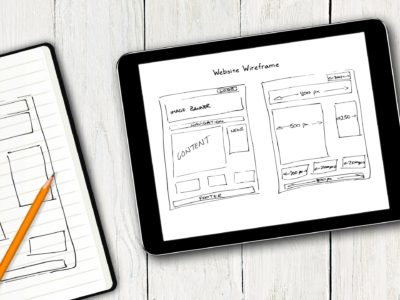 Website Wireframe
IMAGE BANNER
NAVIGATION
CONTENT
NEWS
FOOTER
800 px
500 px
250
200px
200px
200px